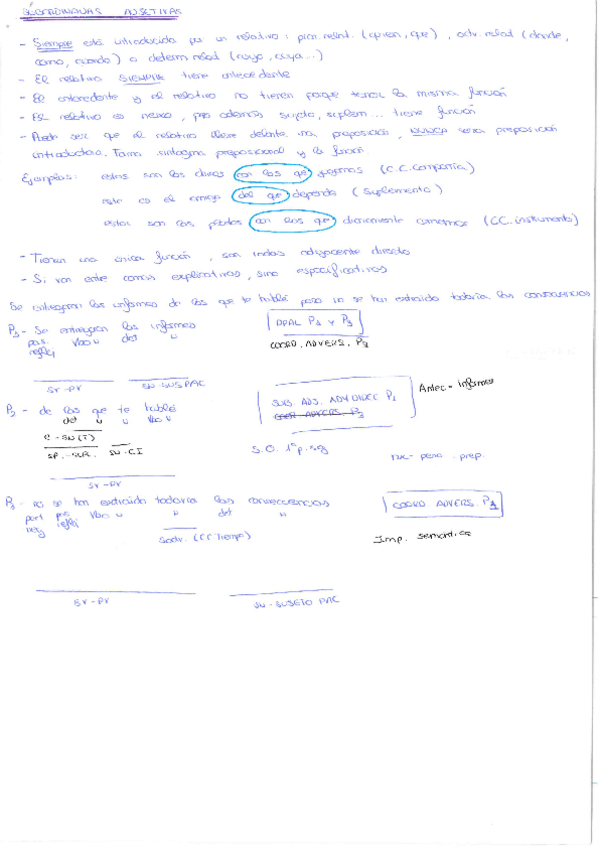 SUBORDINADAS ADJETIVAS
- Siempre está introducida por un relativo: pron. relat. (quien, que), adv. relat (donde,
como, cuando) o determ relat (cuyo, cuya...)
- El relativo SIEMPRE tiene antecedente
- El antecedente y el relativo no tienen porque tener la misma función
- El relativo es nexo, pero además sujeto, suplem... tiene función
- Puede ser que el relativo lleve delante una preposición, NUNCA será preposición
introductoria. Forma sintagma preposicional y la función.
Ejemplos: estos son los chicos con los que jugamos (C.C.Compañía)
este es el amigo del que dependo (Suplemento)
estos son los platos con los que diariamente comemos (CC.instrumento)
- Tienen una única función, son modos adyacente directo
- Si van entre comas explicativas, sino especificativas
Se entregaron los informes de los que te hablé pero no se han extraído todavía las consecuencias
P1 - Se entregaron los informes
DPAL P1 y P3
pas. Vbo u det u
reflej
COORD. ADVERS. P3
SV-PV SN-SUJ PAC
P2 - de los que te hablé
SUB. ADJ. ADY DIREC P1
Antec = informes
det u u Vbo u
COOR ADVERS. P3
E - SN (T)
SP.-SUPL. SN-CI
S.O. 1ª p. sg
nx - pero. prep.
SV-PV
P3 - no se han extraído todavía las consecuencias
COORD. ADVERS. P1
part pas Vbo u u det u
neg reflej
Sadv. (CCTiempo)
Imp. semántica
SV-PV SN-SUJETO PAC